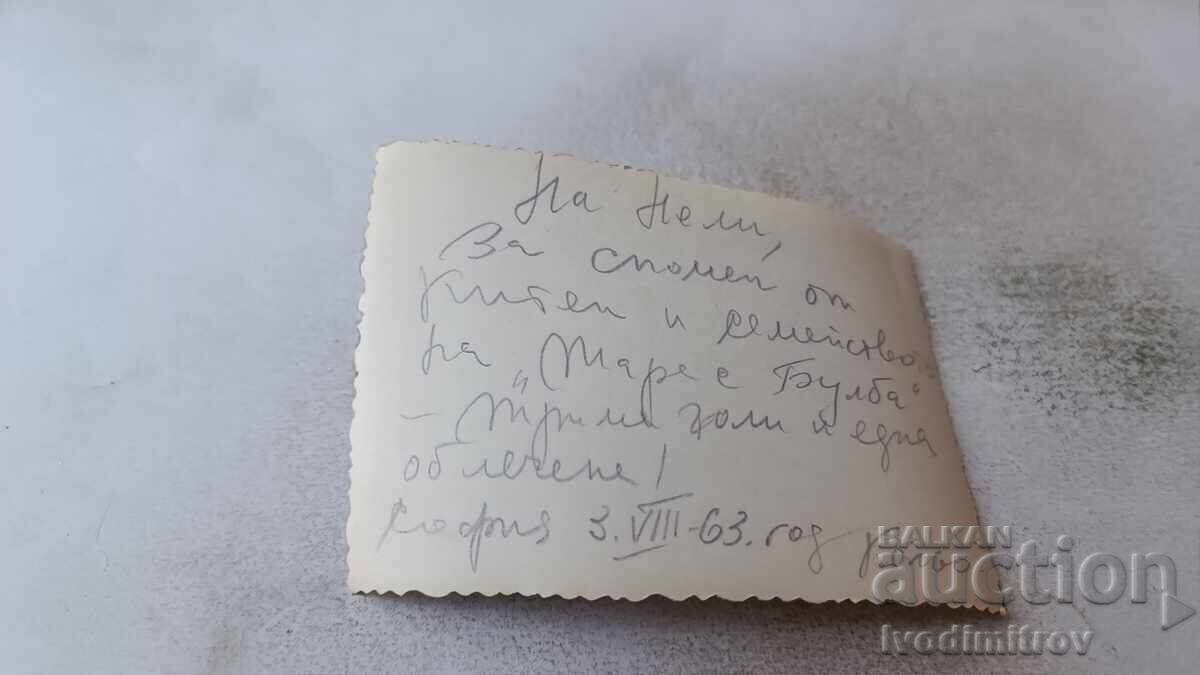 На Нели,
За спомен от
Китен и семейство
на „Тарас Булба“
– голи и една
облечена!
София 3.VIII-63.год
BALKAN
auction
Ivodimitrov